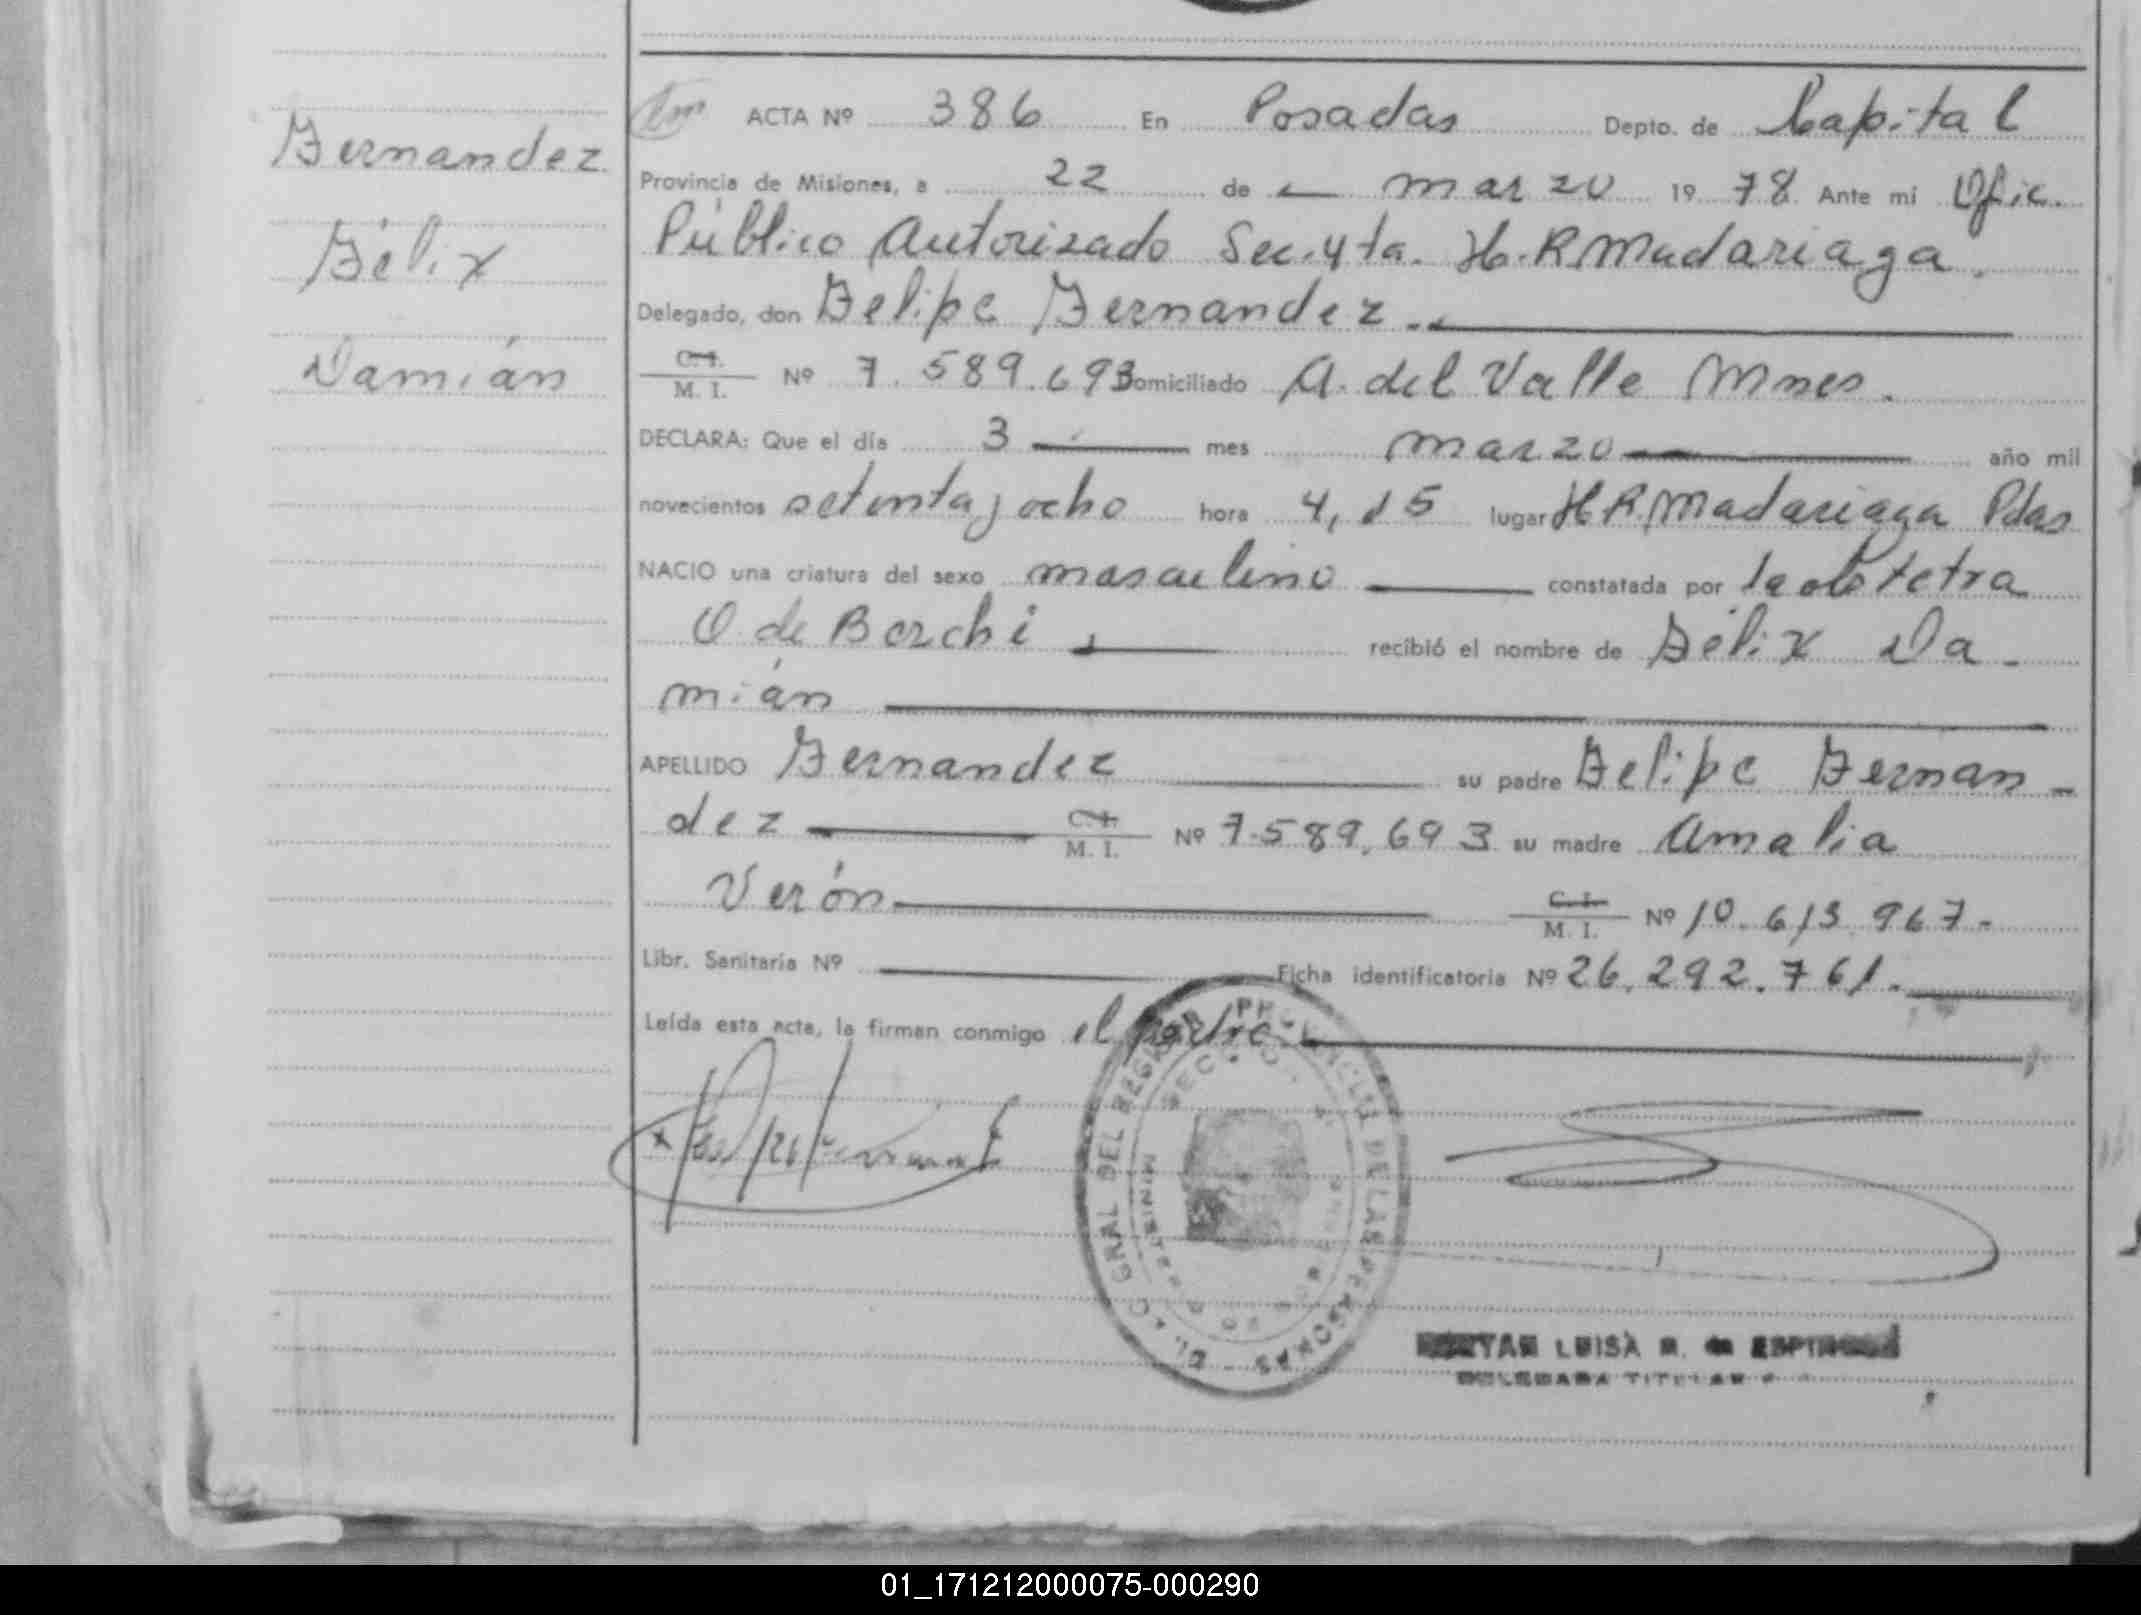 Fernandez
Félix
Damián
ACTA Nº 386 En Posadas Depto. de Capital
Provincia de Misiones, a 22 de marzo 1978 Ante mi Ofic.
Público Autorizado Sec. 4ta. H. R. Madariaga.
Delegado, don Felipe Fernandez
C. I. / M. I. Nº 7.589.693 Domiciliado A. del Valle Mnes.
DECLARA: Que el día 3 mes marzo año mil
novecientos setenta y ocho hora 4,15 lugar H R. Madariaga Pdas
NACIO una criatura del sexo masculino constatada por la obstetra
O. de Berchi recibió el nombre de Félix Da-
mián
APELLIDO Fernandez su padre Felipe Fernan-
dez C. I. / M. I. Nº 7.589.693 su madre Amalia
Verón C. I. / M. I. Nº 10.613.967.-
Libr. Sanitaria Nº Ficha identificatoria Nº 26.292.761.-
Leída esta acta, la firman conmigo el padre
GRAL DEL REGISTRO PROVINCIAL DE LAS PERSONAS
MINISTERIO
LUISA R. de
DELEGADA TITULAR
01_171212000075-000290